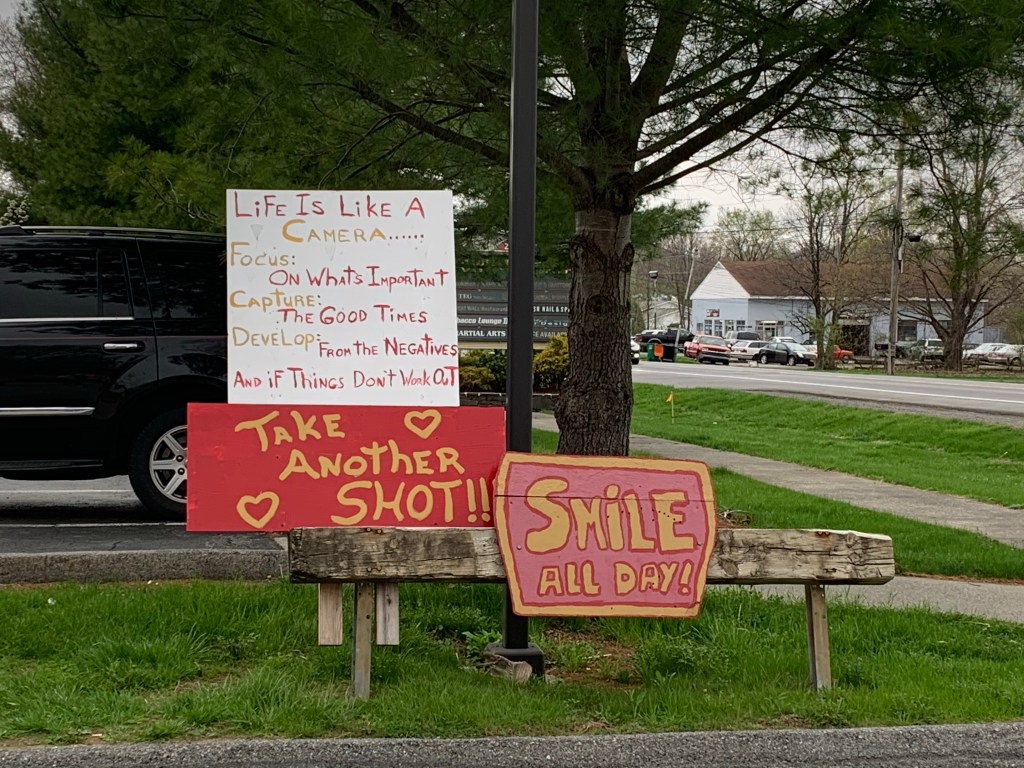 LiFE IS LIKE A
CAMERA......
FOCUS:
ON WHAT'S IMPORTANT
CAPTURE:
THE GOOD TIMES
DEVELOP: FROM THE NEGATIVES
AND iF THINGS DON'T WORK OUT
TAKE
ANOTHER
SHOT!!
SMiLE
ALL DAY!
NAIL & SPA
Lounge
MARTIAL ARTS